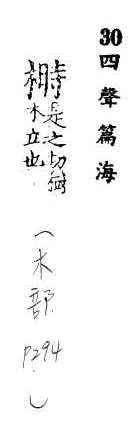 30 四聲篇海
榯是之切樹
木立也
(木部 P294)